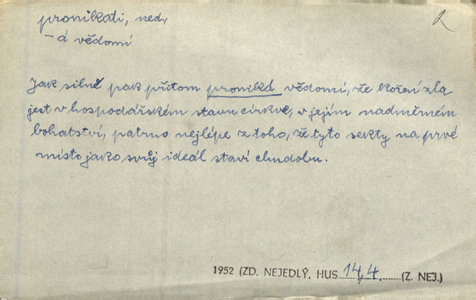 pronikati, ned.,
– á vědomí
Jak silně pak přitom proniká vědomí, že koření zla
jest v hospodářském stavu církve, v jejím nadměrném
bohatství, patrno nejlépe z toho, že tyto sekty na prvé
místo jako svůj ideál staví chudobu.
1952 (ZD. NEJEDLÝ, HUS 14,4, (Z. NEJ.)